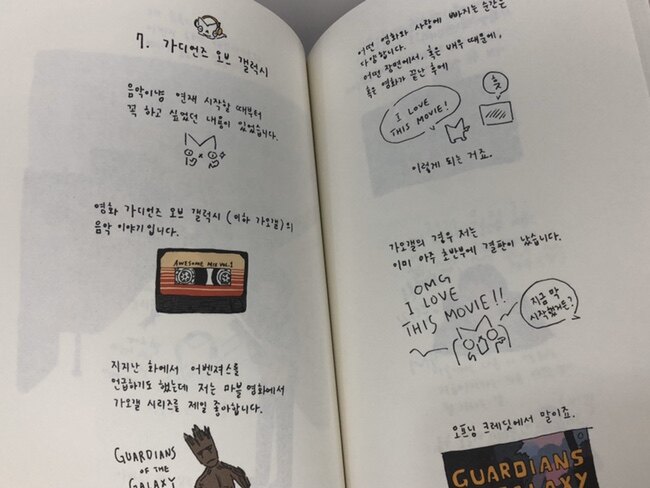 7. 가디언즈 오브 갤럭시
음악이냥 연재 시작할 때부터
꼭 하고 싶었던 내용이 있었습니다.
영화 가디언즈 오브 갤럭시 (이하 가오갤)의
음악 이야기입니다.
AWESOME MIX VOL.1
지지난 화에서 어벤져스를
언급하기도 했는데 저는 마블 영화에서
가오갤 시리즈를 제일 좋아합니다.
GUARDIANS
OF THE
GALAXY
어떤 영화와 사랑에 빠지는 순간은
다양합니다.
어떤 장면에서, 혹은 배우 때문에,
혹은 영화가 끝난 후에
I LOVE
THIS MOVIE!
훗
이렇게 되는 거죠.
가오갤의 경우 저는
이미 아주 초반부에 결판이 났습니다.
OMG
I LOVE
THIS MOVIE!!
지금 막
시작했거든?
오프닝 크레딧에서 말이죠.
GUARDIANS
GALAXY